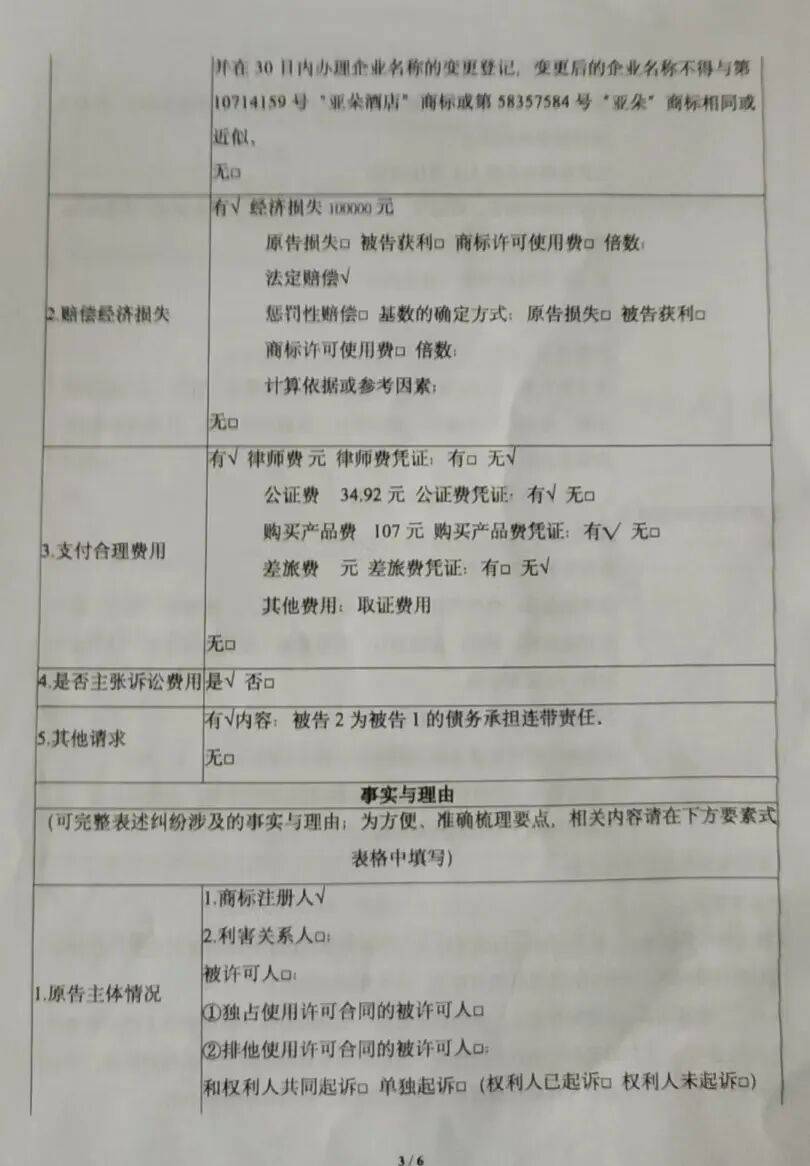 并在 30 日内办理企业名称的变更登记，变更后的企业名称不得与第
10714159 号“亚朵酒店”商标或第 58357584 号“亚朵”商标相同或
近似。
无□
2.赔偿经济损失
有√ 经济损失 100000 元
原告损失□ 被告获利□ 商标许可使用费□ 倍数：
法定赔偿√
惩罚性赔偿□ 基数的确定方式：原告损失□ 被告获利□
商标许可使用费□ 倍数：
计算依据或参考因素：
无□
3.支付合理费用
有√ 律师费 元 律师费凭证：有□ 无√
公证费 34.92 元 公证费凭证：有√ 无□
购买产品费 107 元 购买产品费凭证：有√ 无□
差旅费 元 差旅费凭证：有□ 无√
其他费用：取证费用
无□
4.是否主张诉讼费用
是√ 否□
5.其他请求
有√内容：被告 2 为被告 1 的债务承担连带责任.
无□
事实与理由
(可完整表述纠纷涉及的事实与理由；为方便、准确梳理要点，相关内容请在下方要素式
表格中填写)
1.原告主体情况
1.商标注册人√
2.利害关系人□：
被许可人□：
①独占使用许可合同的被许可人□
②排他使用许可合同的被许可人□：
和权利人共同起诉□ 单独起诉□ (权利人已起诉□ 权利人未起诉□)
3 / 6